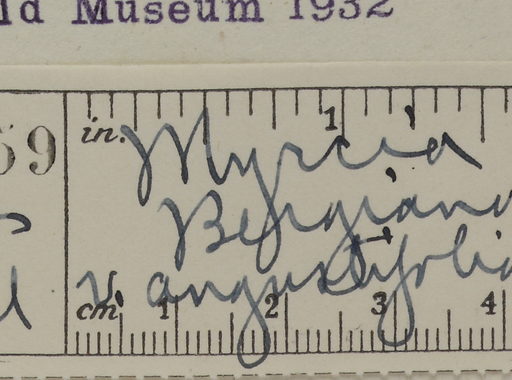 ld Museum 1932
59
in. 1
Myrcia
Bergiana
v. angustifolia
cm. 1 2 3 4